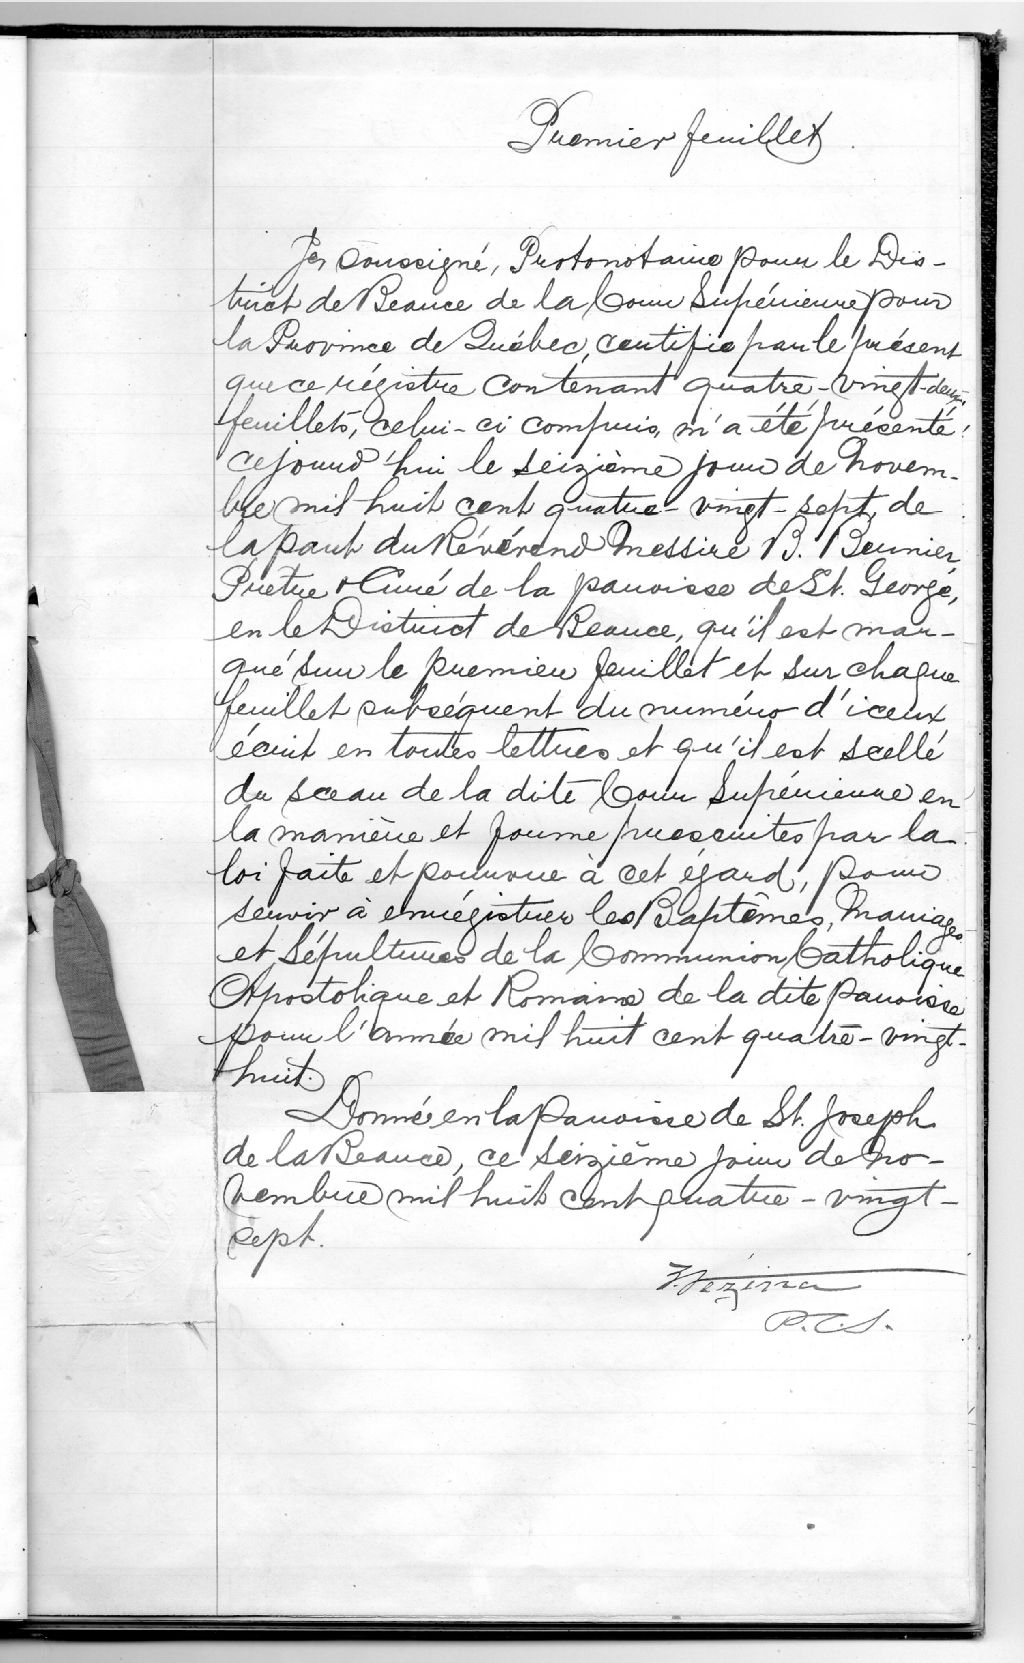 Premier feuillet
Je, soussigné, Protonotaire pour le Dis-
trict de Beauce de la Cour Supérieure pour
la Province de Québec, certifie par le présent
que ce régistre contenant quatre-vingt-deux
feuillets, celui-ci compris, m'a été présenté
cejourd'hui le seizième jour de Novem-
bre mil huit cent quatre-vingt-sept, de
la part du Révérend Messire B. Bernier,
Prêtre & Curé de la paroisse de St. George,
en le District de Beauce, qu'il est mar-
qué sur le premier feuillet et sur chaque
feuillet subséquent du numéro d'iceux
écrit en toutes lettres et qu'il est scellé
du sceau de la dite Cour Supérieure en
la manière et forme prescrites par la
loi faite et pourvue à cet égard, pour
servir à enrégistrer les Baptêmes, Mariages
et Sépultures de la Communion Catholique
Apostolique et Romaine de la dite paroisse
pour l'année mil huit cent quatre-vingt-
huit.
Donné en la paroisse de St. Joseph
de la Beauce, ce seizième jour de No-
vembre mil huit cent quatre-vingt-
sept.
Vézina
P.C.S.